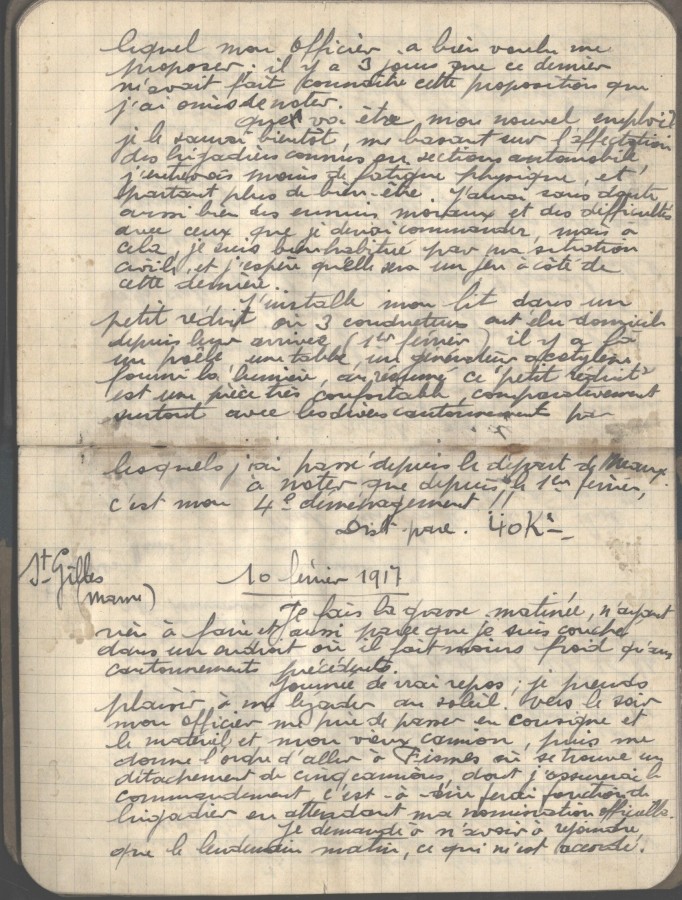 lequel mon Officier a bien voulu me
proposer : il y a 3 jours que ce dernier
m'avait fait connaître cette proposition que
j'ai omis de noter.
Quel va être mon nouvel emploi?
je le saurai bientôt, me basant sur l'affectation
des brigadiers connus en sections automobile
j'entrevois moins de fatigue physique, et
partant plus de bien-être. J'aurai sans doute
aussi bien des ennuis moraux et des difficultés
avec ceux que je devrai commander, mais à
cela je suis bien habitué par ma situation
civile, et j'espère qu'elle sera un jeu à côté de
cette dernière.
J'installe mon lit dans un
petit réduit où 3 conducteurs ont élu domicile
depuis leur arrivée (1er février) il y a là
un poële une table, un générateur acétylène
fourni la lumière, en résumé ce "petit réduit"
est une pièce très confortable, comparativement
surtout avec les divers cantonnements par
lesquels j'ai passé depuis le départ de Meaux.
à noter que depuis le 1er février,
c'est mon 4e déménagement !!
Dist. parc. 40 Ks
St Gilles
Marne)
10 février 1917
Je fais la grasse matinée, n'ayant
rien à faire et aussi parce que je suis couché
dans un endroit où il fait moins froid qu'aux
cantonnements précédents.
Journée de vrai repos ; je prends
plaisir à me lézarder au soleil. Vers le soir
mon officier me prie de passer en consigne et
le matériel et mon vieux camion, puis me
donne l'ordre d'aller à Fismes où se trouve un
détachement de cinq camions, dont j'assurerai le
commandement, c'est-à-dire ferai fonction de
brigadier en attendant ma nomination officielle.
Je demande à n'avoir à rejoindre
que le lendemain matin, ce qui m'est accordé.